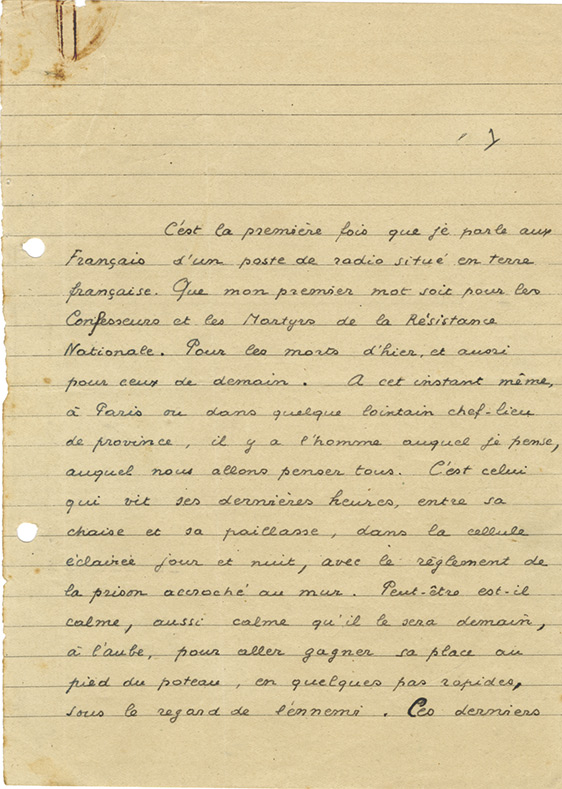 1
C'est la première fois que je parle aux
Français d'un poste de radio situé en terre
française. Que mon premier mot soit pour les
Confesseurs et les Martyrs de la Résistance
Nationale. Pour les morts d'hier, et aussi
pour ceux de demain. A cet instant même,
à Paris ou dans quelque lointain chef-lieu
de province, il y a l'homme auquel je pense,
auquel nous allons penser tous. C'est celui
qui vit ses dernières heures, entre sa
chaise et sa paillasse, dans la cellule
éclairée jour et nuit, avec le règlement de
la prison accroché au mur. Peut-être est-il
calme, aussi calme qu'il le sera demain,
à l'aube, pour aller gagner sa place au
pied du poteau, en quelques pas rapides,
sous le regard de l'énnemi. Ces derniers